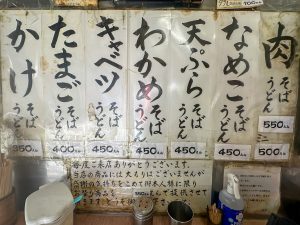 肉
そば
うどん
550円
500円
なめこ
そば
うどん
450円
天ぷら
そば
うどん
450円
わかめ
そば
うどん
450円
キャベツ
そば
うどん
450円
たまご
そば
うどん
400円
かけ
そば
うどん
350円
毎度ご来店ありがとうございます。
当店の商品には大もりはございませんが